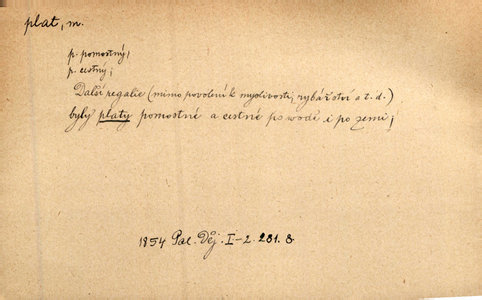 plat, m.
p. pomostný;
p. cestný;
Další regalie (mimo povolení k myslivosti, rybářství a t. d.)
byly platy pomostné a cestné po wodě i po zemi;
1854 Pal. Děj. I-2. 281. 8.